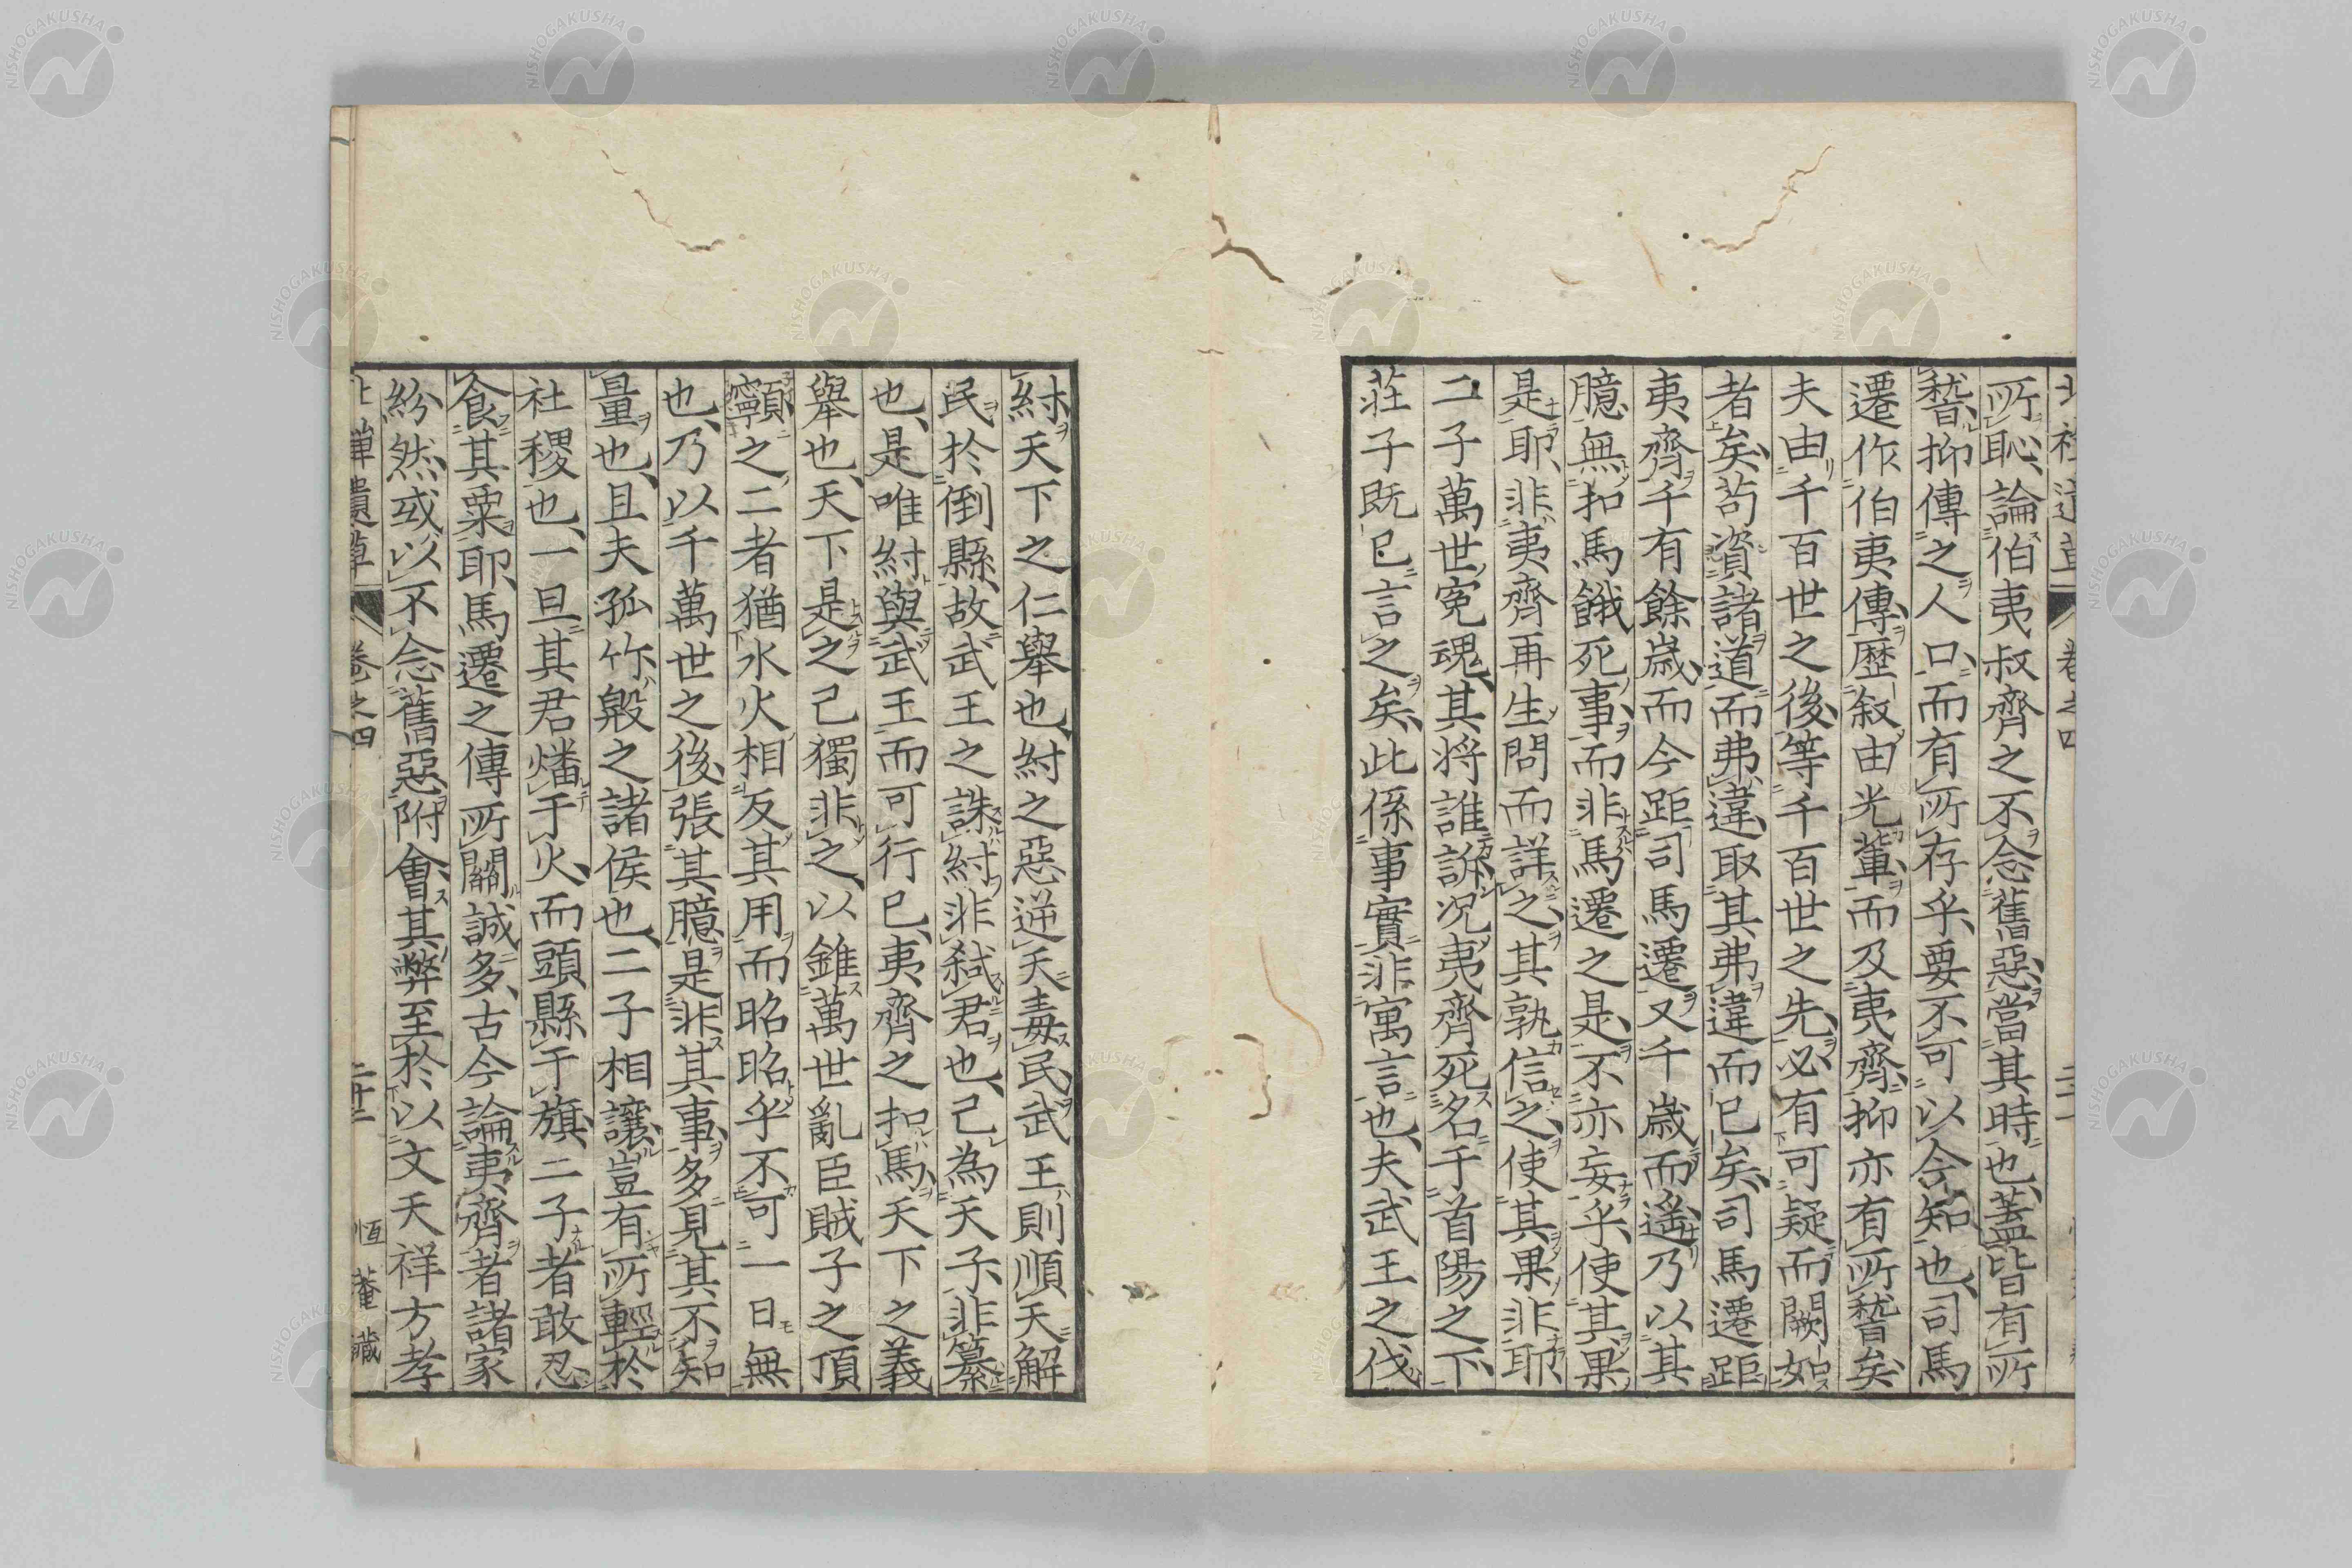 所恥論伯夷叔齊之不念舊惡當其時也蓋皆有所
稽抑傳之人口而有所存乎要不可以今知也司馬
遷作伯夷傳歷叙由光輩而及夷齊抑亦有所稽矣
夫由千百世之後等千百世之先必有可疑而闕如
者矣苟資諸道而弗違取其弗違而已矣司馬遷距
夷齊千有餘歲而今距司馬遷又千歲而遙乃以其
臆無扣馬餓死事而非馬遷之是不亦妄乎使其果
是耶非夷齊再生問而詳之其孰信之使其果非耶
二子萬世冤魂其將誰訴況夷齊死名于首陽之下
莊子既已言之矣此係事實非寓言也夫武王之伐
紂天下之仁舉也紂之惡逆天毒民武王則順天解
民於倒縣故武王之誅紂非弑君也己為天子非篡
也是唯紂與武王而可行已夷齊之扣馬天下之義
舉也天下是之己獨非之以錐萬世亂臣賊子之頂
顙之二者猶水火相反其用而昭昭乎不可一日無
也乃以千萬世之後張其臆是非其事多見其不知
量也且夫孤竹毅之諸侯也二子相讓豈有所輕於
社稷也一旦其君燔于火而頭縣于旗二子者敢忍
食其粟耶馬遷之傳所關誠多古今論夷齊者諸家
紛然或以不念舊惡附會其弊至於以文天祥方孝
北禪遺草 卷之四 二十二 恒菴藏
NISHOGAKUSHA